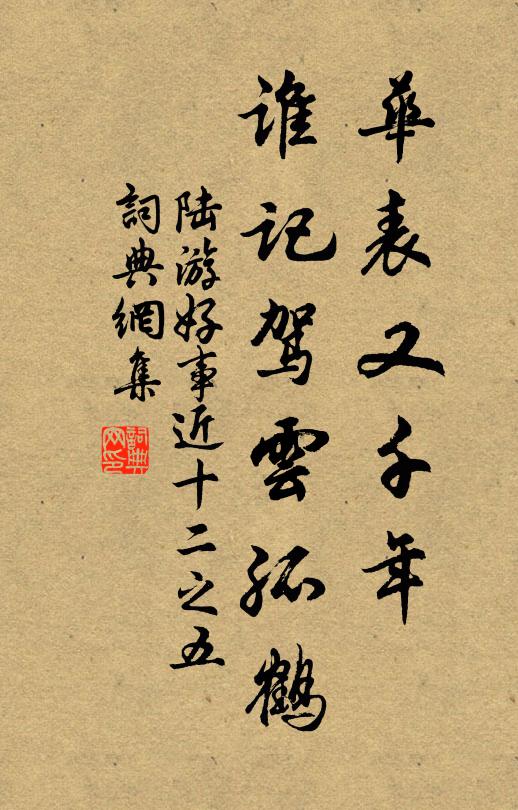 華表又千年
誰记駕雲孤鶴
陆游好事近十二之五
詞典網集
詞典网印